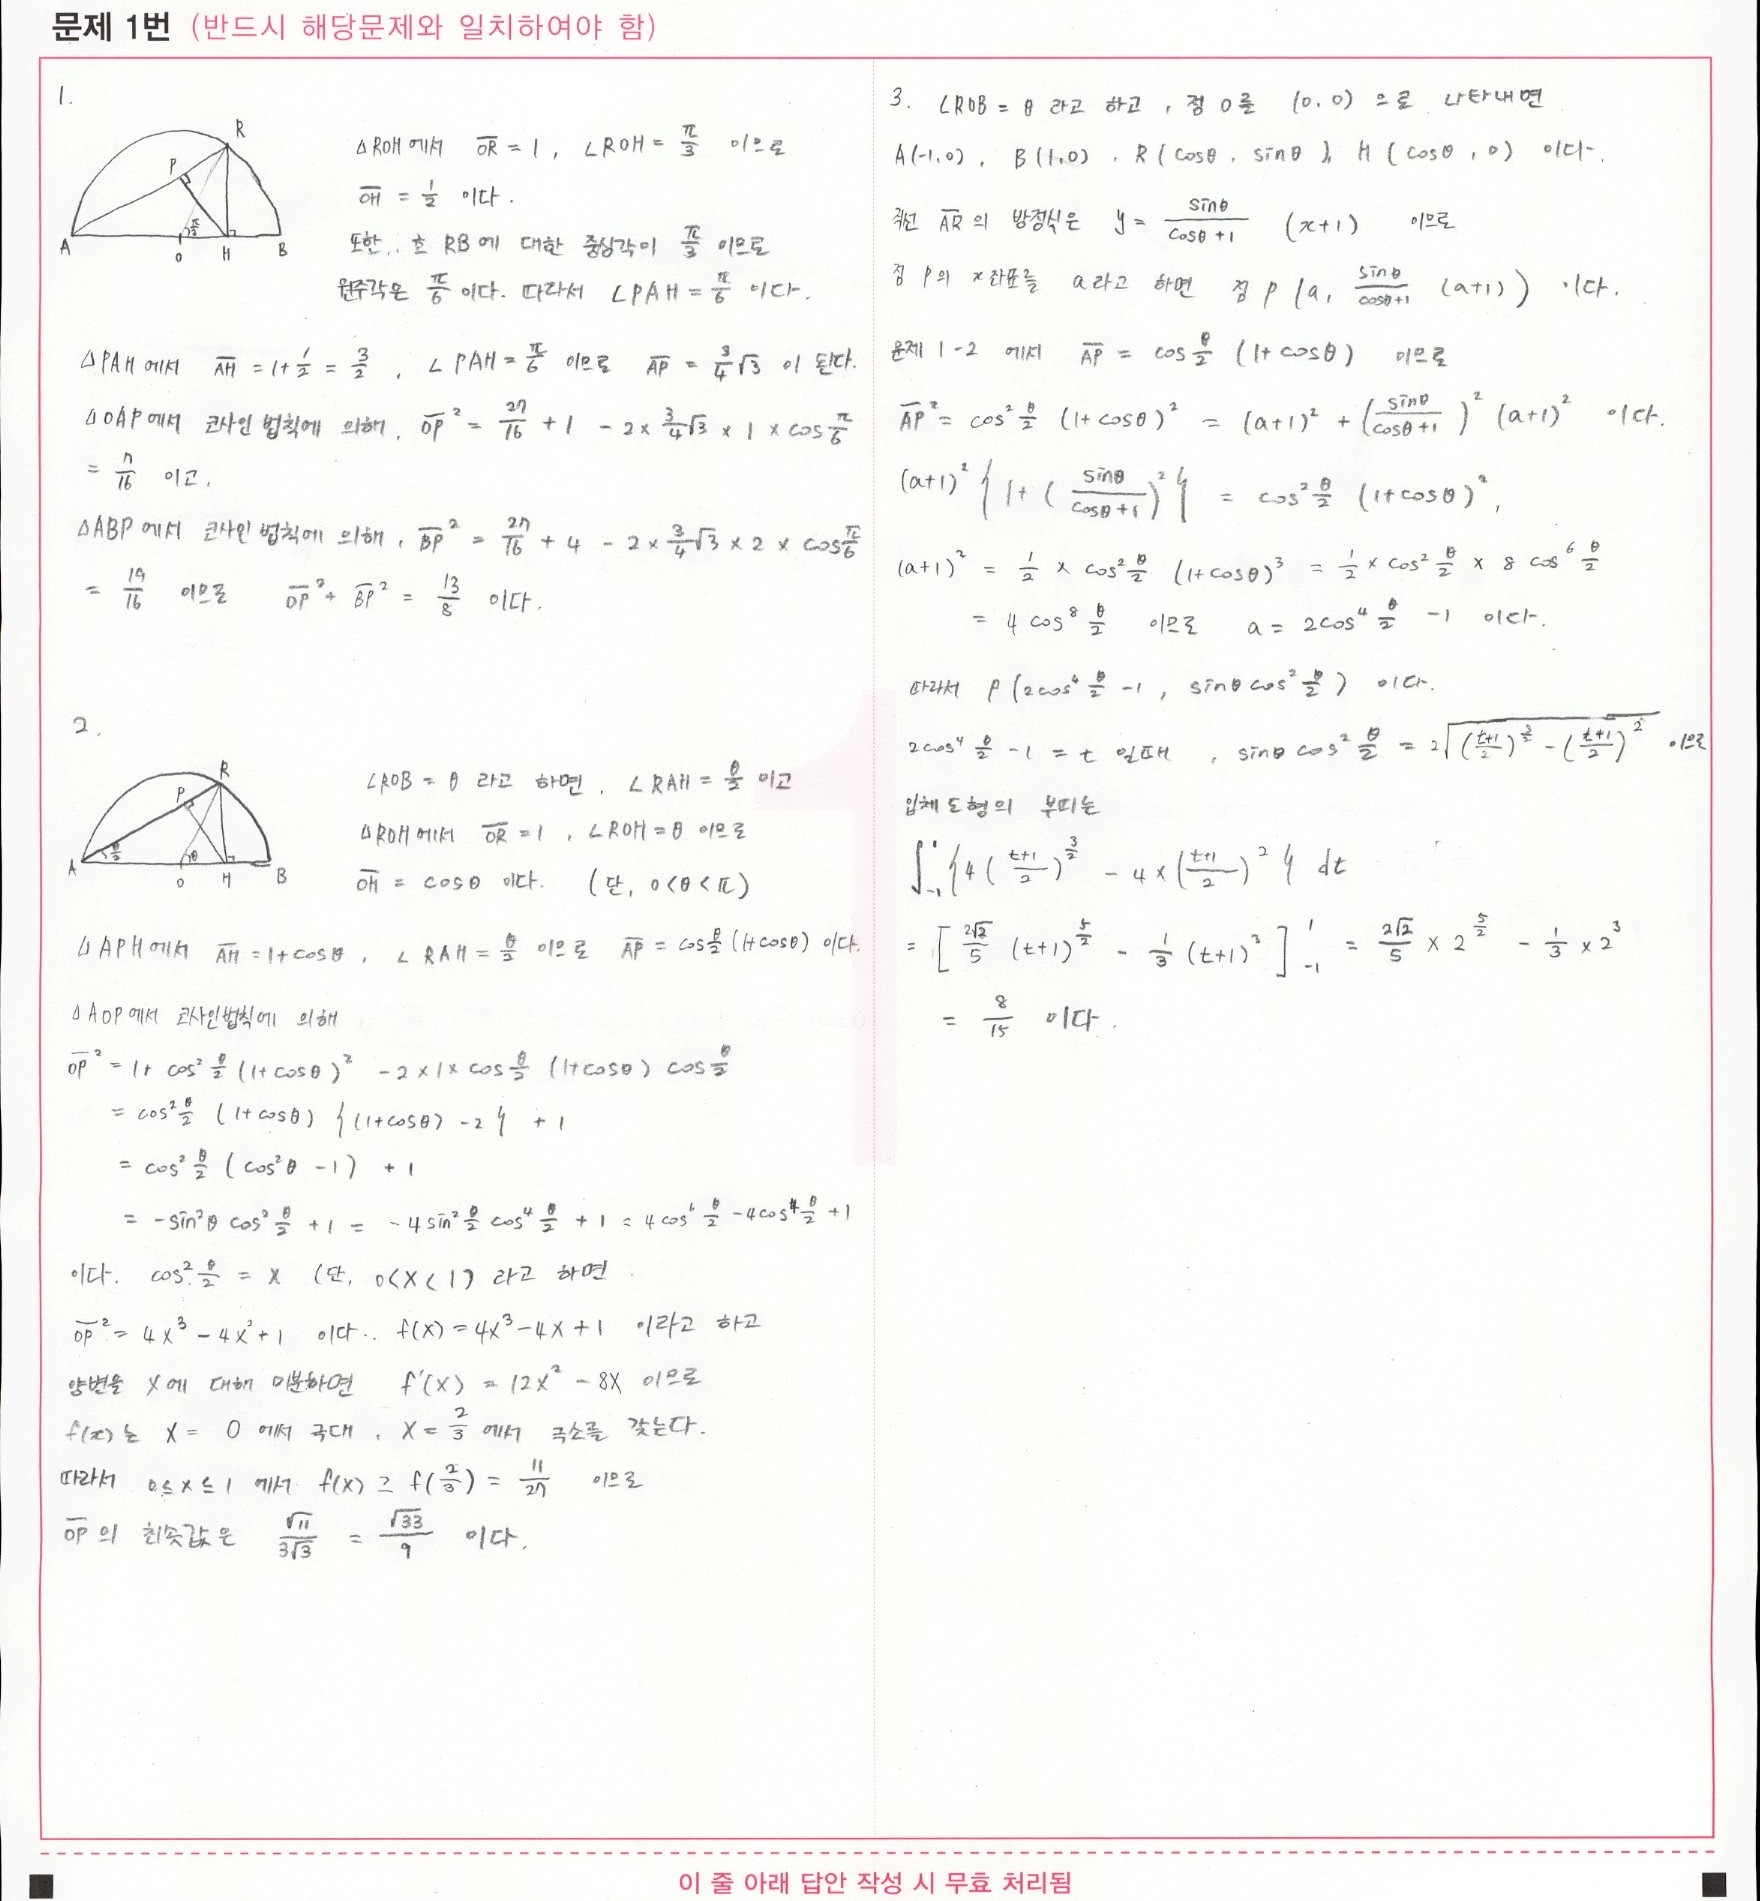 문제 1번 (반드시 해당문제와 일치하여야 함)
1.
R
P
π/3
A
O
H
B
△ROH에서 OR̅ = 1, ∠ROH = π/3 이므로
OH̅ = 1/2 이다.
또한, 호 RB에 대한 중심각이 π/3 이므로
원주각은 π/6 이다. 따라서 ∠PAH = π/6 이다.
△PAH에서 AH̅ = 1+1/2 = 3/2, ∠PAH = π/6 이므로 AP̅ = 3/4√3 이 된다.
△OAP에서 코사인 법칙에 의해, OP̅² = 27/16 + 1 - 2×3/4√3×1×cosπ/6
= 7/16 이고,
△ABP에서 코사인 법칙에 의해, BP̅² = 27/16 + 4 - 2×3/4√3×2×cosπ/6
= 19/16 이므로 OP̅² + BP̅² = 13/8 이다.
2.
R
P
θ/2
θ
A
O
H
B
∠ROB = θ 라고 하면, ∠RAH = θ/2 이고
△ROH에서 OR̅ = 1, ∠ROH = θ 이므로
OH̅ = cosθ 이다. (단, 0<θ<π)
△APH에서 AH̅ = 1+cosθ, ∠RAH = θ/2 이므로 AP̅ = cosθ/2 (1+cosθ) 이다.
△AOP에서 코사인법칙에 의해
OP̅² = 1+ cos²θ/2 (1+cosθ)² - 2×1×cosθ/2 (1+cosθ) cosθ/2
= cos²θ/2 (1+cosθ) {(1+cosθ) -2} + 1
= cos²θ/2 (cos²θ -1) + 1
= -sin²θ cos²θ/2 + 1 = -4sin²θ/2 cos⁴θ/2 + 1 = 4cos⁶θ/2 - 4cos⁴θ/2 + 1
이다. cos²θ/2 = X (단, 0<X<1) 라고 하면
OP̅² = 4X³ - 4X² + 1 이다. f(X) = 4X³ - 4X + 1 이라고 하고
양변을 X에 대해 미분하면 f'(X) = 12X² - 8X 이므로
f(x)는 X = 0 에서 극대, X = 2/3 에서 극소를 갖는다.
따라서 0≤X≤1 에서 f(X) ≥ f(2/3) = 11/27 이므로
OP̅의 최솟값은 √11/3√3 = √33/9 이다.
3. ∠ROB = θ 라고 하고, 점 O를 (0,0) 으로 나타내면
A(-1,0), B(1,0), R(cosθ, sinθ), H(cosθ, 0) 이다.
직선 AR̅의 방정식은 y = sinθ/(cosθ+1) (x+1) 이므로
점 P의 x좌표를 a라고 하면 점 P(a, sinθ/(cosθ+1) (a+1)) 이다.
문제 1-2 에서 AP̅ = cosθ/2 (1+cosθ) 이므로
AP̅² = cos²θ/2 (1+cosθ)² = (a+1)² + (sinθ/(cosθ+1))² (a+1)² 이다.
(a+1)² {1+ (sinθ/(cosθ+1))²} = cos²θ/2 (1+cosθ)²,
(a+1)² = 1/2 × cos²θ/2 (1+cosθ)³ = 1/2 × cos²θ/2 × 8cos⁶θ/2
= 4cos⁸θ/2 이므로 a = 2cos⁴θ/2 -1 이다.
따라서 P(2cos⁴θ/2 -1, sinθcos²θ/2) 이다.
2cos⁴θ/2 -1 = t 일때, sinθcos²θ/2 = 2√((t+1)/2)^(3/2) - ((t+1)/2)² 이므로
입체도형의 부피는
∫₋₁¹ {4((t+1)/2)^(3/2) - 4×((t+1)/2)²} dt
= [2√2/5 (t+1)^(5/2) - 1/3 (t+1)³]₋₁¹ = 2√2/5 × 2^(5/2) - 1/3 × 2³
= 8/15 이다.
1
이 줄 아래 답안 작성 시 무효 처리됨